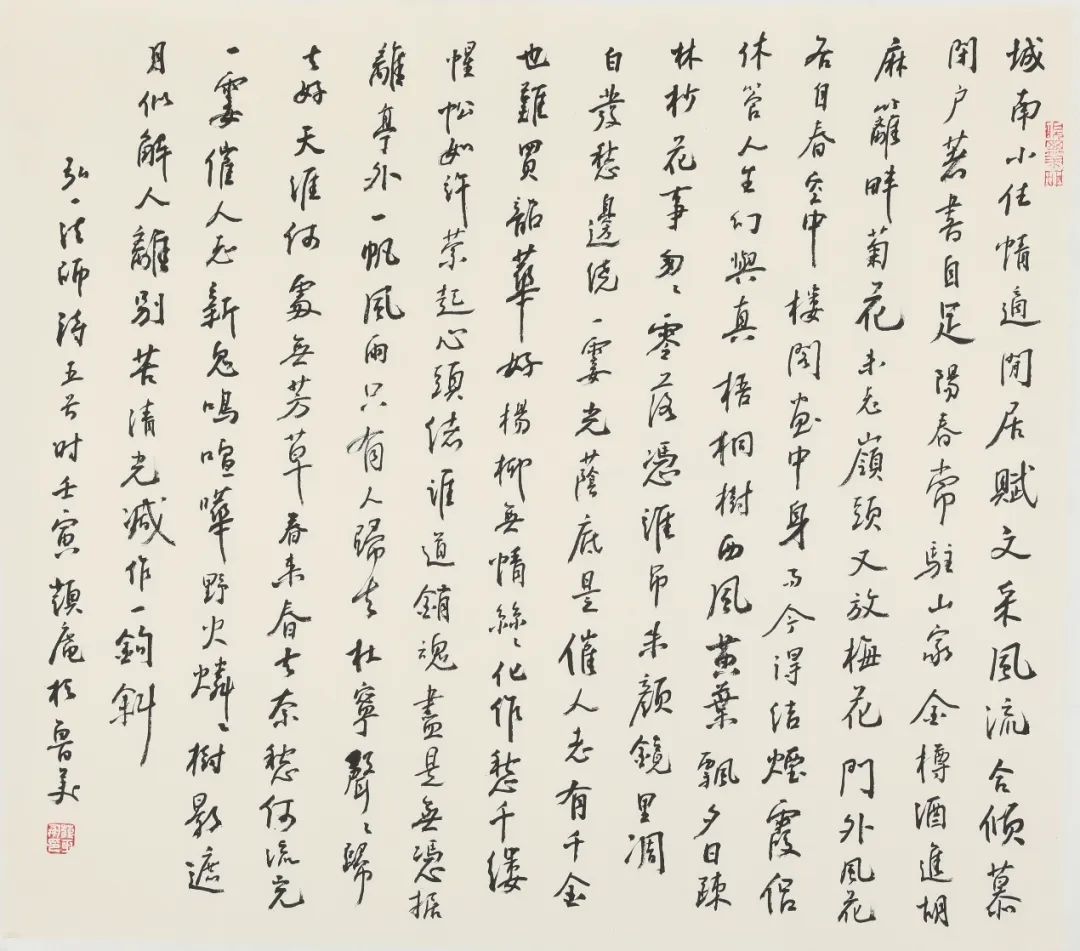 城南小住情適閒居賦文采風流合傾慕
閉户著書自足陽春常駐山家金樽酒進胡
麻籬畔菊花未老嶺頭又放梅花門外風花
各自春空中樓閣画中身而今得结煙霞侣
休管人生幻與真梧桐樹西風黄葉飄夕日疎
林杪花事匆〻零落憑誰吊朱颜鏡里凋
白發愁邊绕一霎光蔭底是催人老有千金
也難買韶華好楊柳無情絲〻化作愁千缕
惺忪如許縈起心頭绪誰道銷魂盡是無憑据
離亭外一帆風雨只有人歸去杜寧聲〻歸
去好天涯何處無芳草春来春去奈愁何流光
一霎催人老新鬼鳴喧嘩野火燐〻樹影遮
月似解人離别苦清光減作一鉤斜
弘一法師詩五首时壬寅颜庵於鲁美